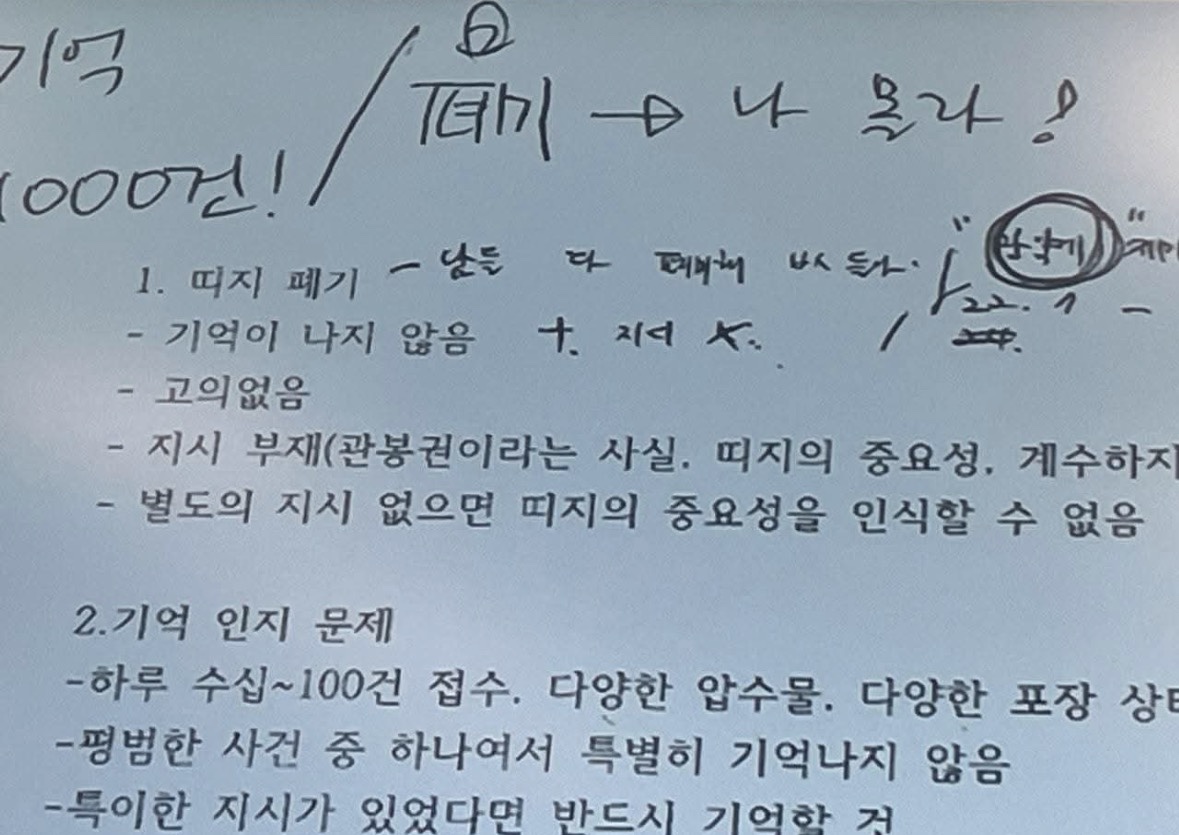 기억 / 폐기 → 나 몰라!
1000건!
1. 띠지 폐기 - 남들 다 폐기해
- 기억이 나지 않음 +. 지시 X.
22.
- 고의없음
- 지시 부재(관봉권이라는 사실. 띠지의 중요성. 계수하지
- 별도의 지시 없으면 띠지의 중요성을 인식할 수 없음
2.기억 인지 문제
-하루 수십~100건 접수. 다양한 압수물. 다양한 포장 상태
-평범한 사건 중 하나여서 특별히 기억나지 않음
-특이한 지시가 있었다면 반드시 기억할 것